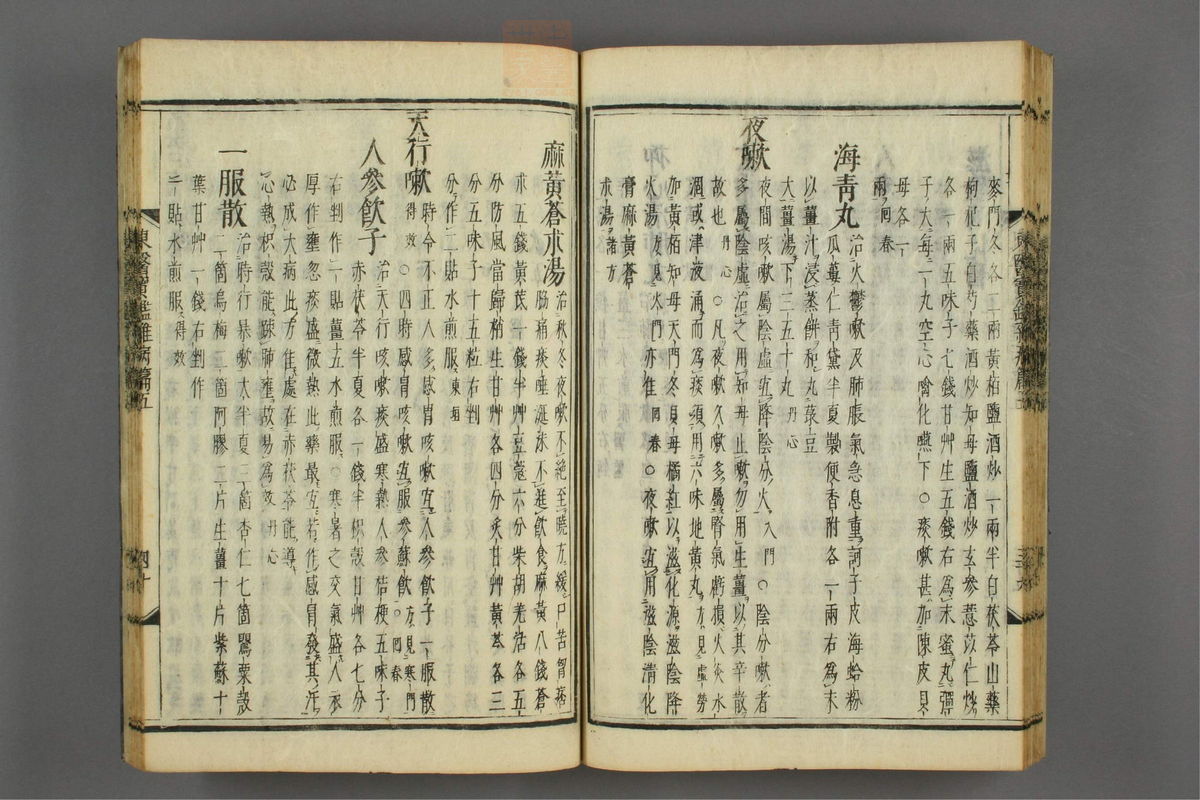 麥門冬各二兩黃栢鹽酒炒一兩半白茯苓山藥
枸杞子白芍藥酒炒知母鹽酒炒玄參薏苡仁炒
各一兩五味子七錢甘艸生五錢右為末蜜丸彈
子大每一丸空心噙化嚥下○痰嗽甚加陳皮貝
母各一
兩回春
海靑丸治火鬱嗽及肺脹氣急息重訶子皮海蛤粉
瓜蔞仁靑黛半夏䴷便香附各一兩右為末
以薑汁浸蒸餠和丸菉豆
大薑湯下三五十丸丹心
夜嗽
夜間咳嗽屬陰虛宜降陰分火入門○陰分嗽者
多屬陰虛治之用知母止嗽勿用生薑以其辛散
故也丹心○凡夜嗽久嗽多屬腎氣虧損火炎水
涸或津液涌而為痰須用六味地黃丸方見虛勞
加黃栢知母天門冬貝母橘紅以滋化源滋陰降
火湯方見火門亦佳回春○夜嗽宜用滋陰淸化
膏麻黃蒼
朮湯諸方
麻黃蒼朮湯治秋冬夜嗽不絶至曉方緩口苦胷痞
脇痛痰唾涎沫不進飮食麻黃八錢蒼
朮五錢黃芪一錢半艸豆蔻六分柴胡羌活各五
分防風當歸梢生甘艸各四分炙甘艸黃芩各三
分五味子十五粒右剉
分作二貼水煎服東垣
天行嗽
時令不正人多感冒咳嗽宜人參飮子一服散
得效○四時感冒咳嗽宜服參蘇飮方見寒門○回春
人參飮子治天行咳嗽痰盛寒熱人參桔梗五味子
赤茯苓半夏各一錢半枳殼甘艸各七分
右剉作一貼薑五水煎服○寒暑之交氣盛人衣
厚作壅忽痰盛微熱此藥最宜若作感冒發其汗
必成大病此方佳處在赤茯苓能導
心熱枳殼能踈肺壅故易為效丹心
一服散治時行暴嗽大半夏三箇杏仁七箇罌粟殼
二箇烏梅二箇阿膠二片生薑十片紫蘇十
葉甘艸一錢右剉作
一貼水煎服得效
東醫寶鑑雜病篇五